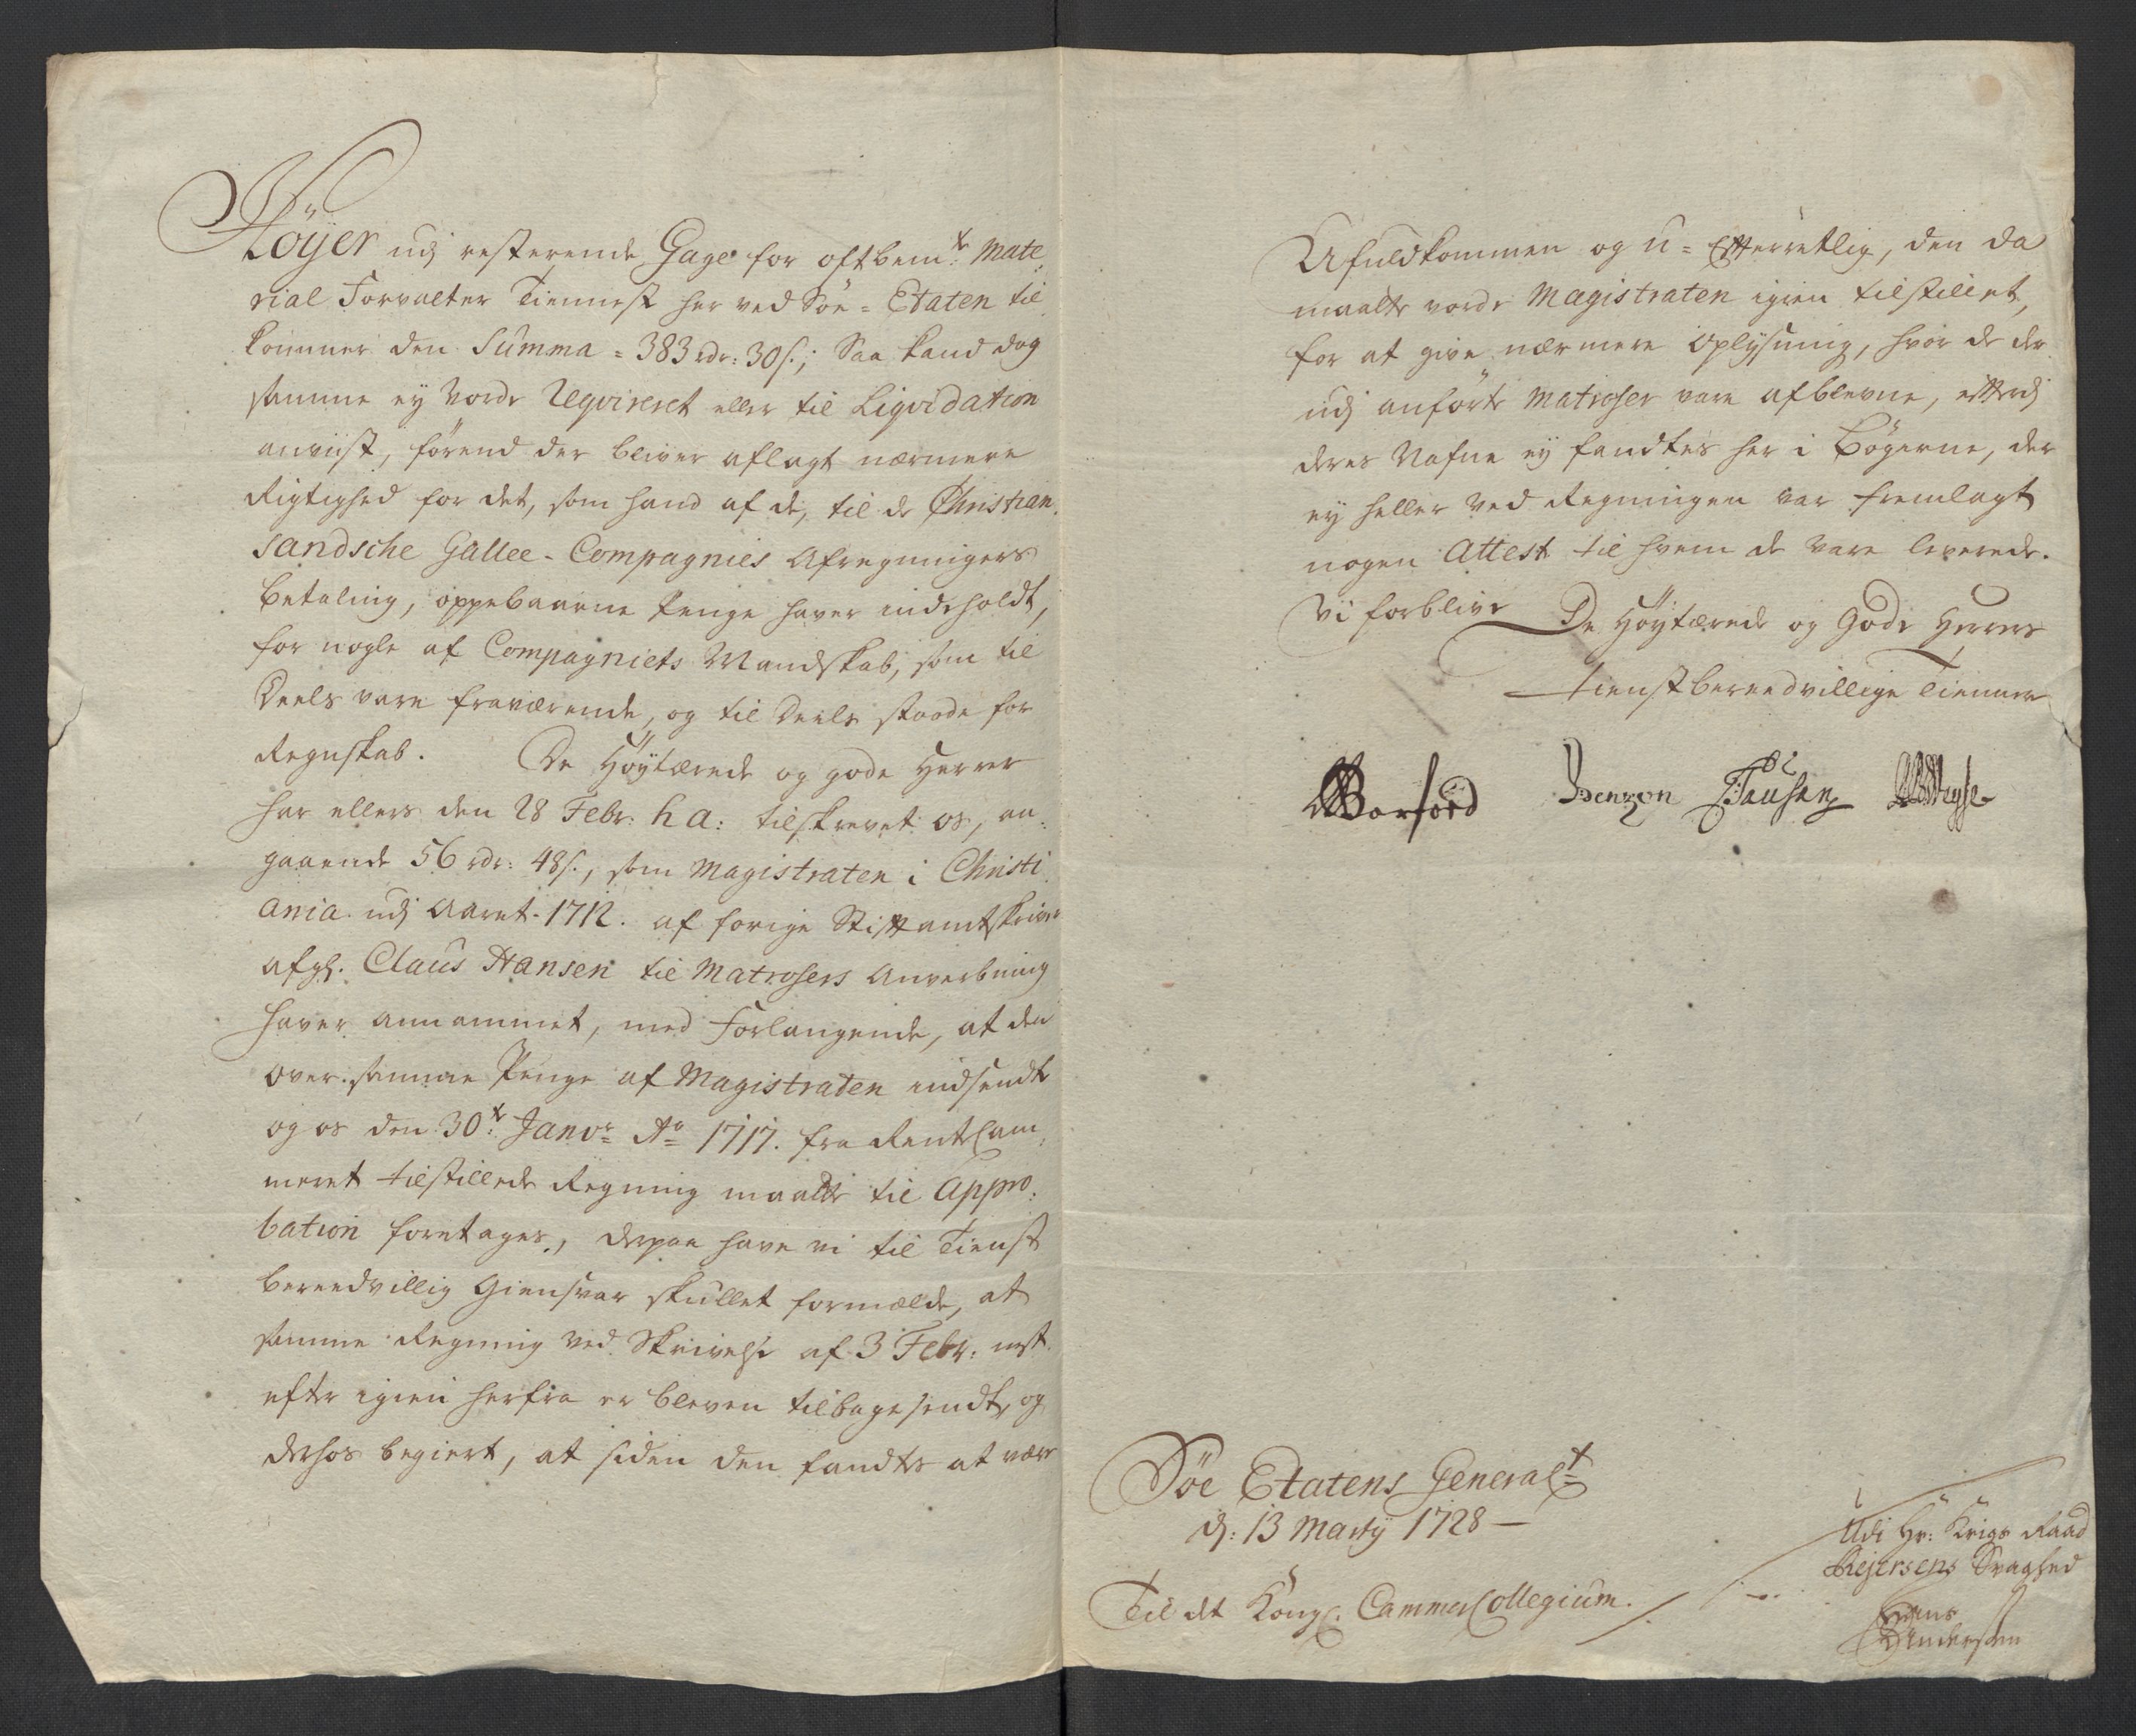 Höÿer udj resterende Gage for oftbem:te Mate:
rial Forvalter Tiennest her ved Söe=Etaten til
kommer den Summa = 383 rdr: 30 s.; Saa kand dog
samme eÿ vorde Reqvireret eller til Liqvidation
anviist, förend der bliver aflagt nærmere
Rigtighed for det, som hand af de, til de Christian
sandsche Gallee-Compagnies Afregningers
Betaling, oppebaarne Penge haver indeholdt,
for nogle af Compagniets Mandskab, som til
Deels vare fraværende, og til Deels stoode for
Regnskab. De Höÿtærede og gode Herrer
har ellers den 28 Febr: h a: tilskrevet os, an:
gaaende 56 rdr: 48 s., som Magistraten i Christi
ania udj Aaret 1712. af forige Stiftamtskriver
afg. Claus Hansen til Matrosers Anverbning
haver annammet, med Forlangende, at den
over samme Penge af Magistraten indsendte
og os den 30:te Janv: Ao 1717. fra Rentecam:
meret tilstillede Regning maatte til Appro:
bation foretages, derpaa have vi til Tienst
bereedvillig Giensvar skullet formælde, at
samme Regning ved Skrivelse af 3 Febr: nest
efter igien herfra er bleven tilbagesendt, og
derhos begiert, at siden den fandtes at være
Ufuldkommen og u=Efterretlig, den da
maatte vorde Magistraten igien tilstillet,
for at give nærmere Oplÿsning, hvor de der
udj anförte Matroser vare afblevne, efterdj
deres Nafne eÿ fandtes her i Bögerne, der
eÿ heller ved Regningen var fremlagt
nogen Attest til hvem de vare leverede.
Vi forblive De Höÿtærede og Gode Herrers
tienstbereedvillige Tienere
Barfoed Benzon Tausen
Söe Etatens General Ct
d: 13 Martÿ 1728 —
Til det Kongl. CammerCollegium.
Udi Hr: Krigs Raad
Rejersens Svaghed
Hans
Andersen